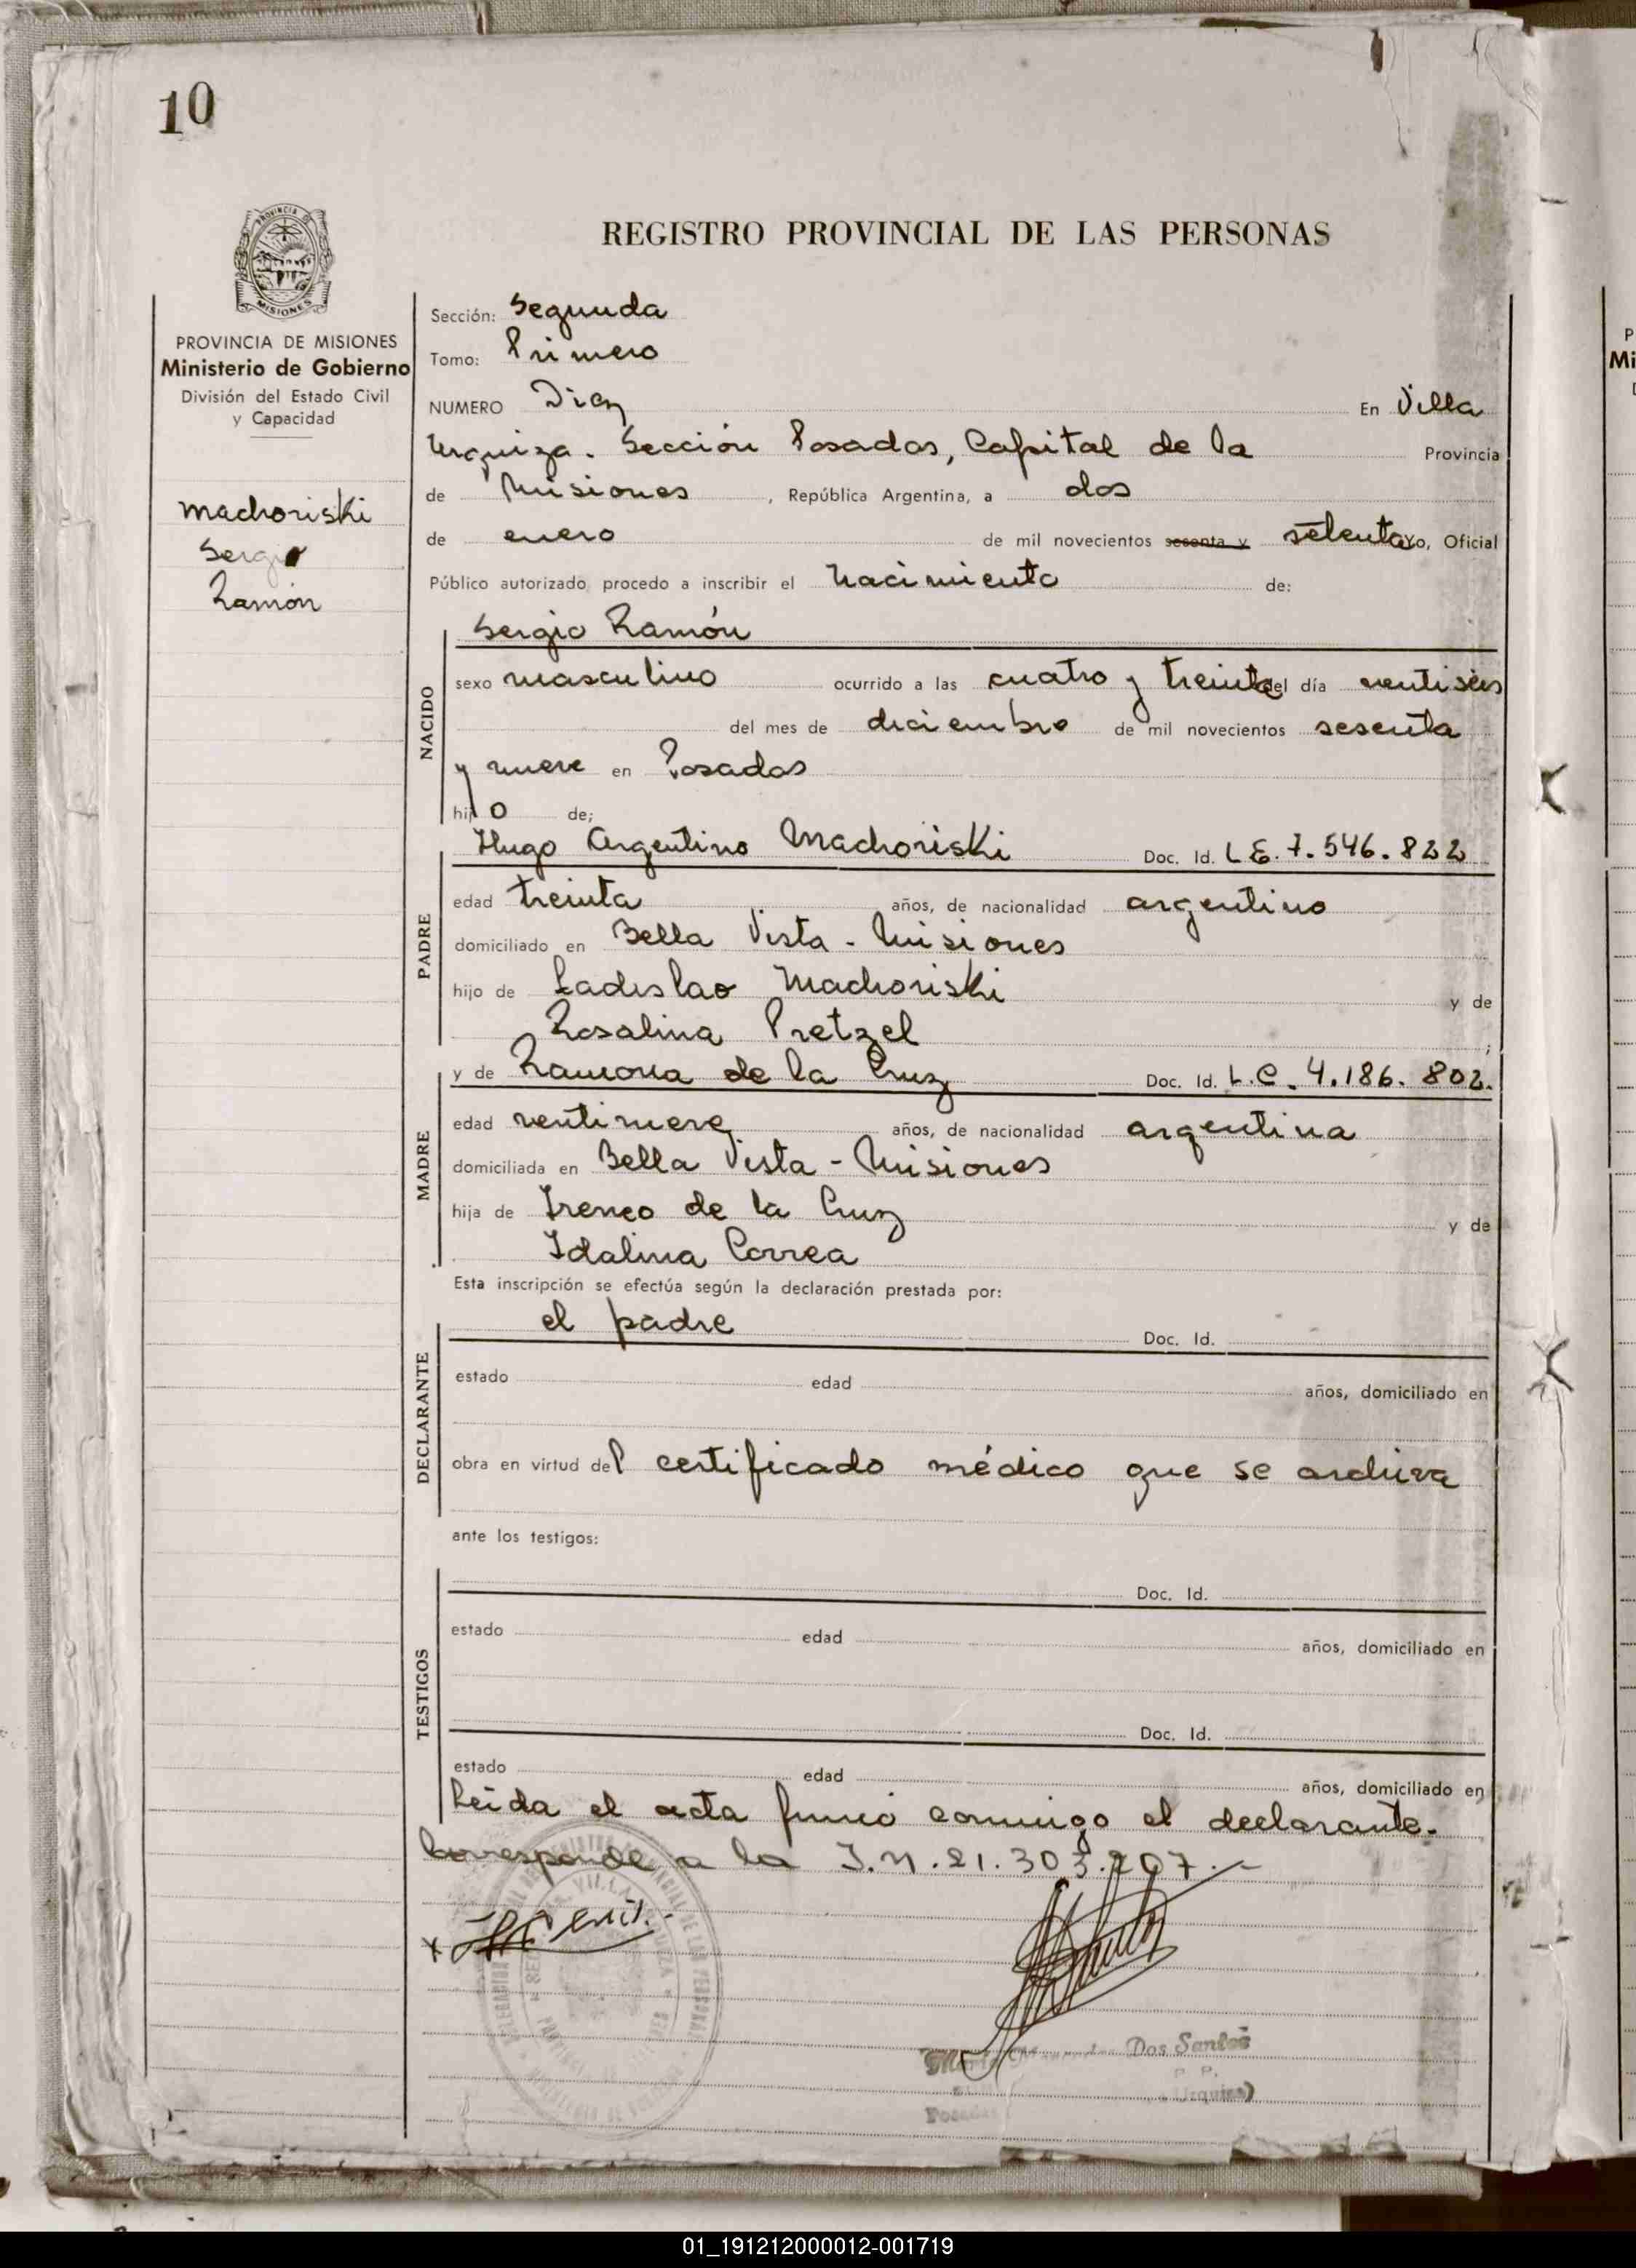 10
REGISTRO PROVINCIAL DE LAS PERSONAS
PROVINCIA DE
MISIONES
PROVINCIA DE MISIONES
Ministerio de Gobierno
División del Estado Civil
y Capacidad
Machoriski
Sergio
Ramón
Sección: Segunda
Tomo: Primero
NUMERO Diez En Villa
Urquiza. Sección Posadas, Capital de la Provincia
de Misiones, República Argentina, a dos
de enero de mil novecientos sesenta y setenta yo, Oficial
Público autorizado, procedo a inscribir el nacimiento de:
NACIDO
Sergio Ramón
sexo masculino ocurrido a las cuatro y treinta del día ventiséis
del mes de diciembre de mil novecientos sesenta
y nueve en Posadas
hijo de;
PADRE
Hugo Argentino Machoriski Doc. Id. L.E. 7.546.822
edad treinta años, de nacionalidad argentino
domiciliado en Bella Vista - Misiones
hijo de Ladislao Machoriski y de
Rosalina Pretzel ;
MADRE
y de Ramona de la Cruz Doc. Id. L.C. 4.186.802.
edad ventinueve años, de nacionalidad argentina
domiciliada en Bella Vista - Misiones
hija de Ireneo de la Cruz y de
Idalina Correa
Esta inscripción se efectúa según la declaración prestada por:
DECLARANTE
el padre Doc. Id.
estado edad años, domiciliado en
obra en virtud del certificado médico que se archiva
ante los testigos:
TESTIGOS
Doc. Id.
estado edad años, domiciliado en
Doc. Id.
estado edad años, domiciliado en
Leída el acta firmó conmigo el declarante.
Corresponde a la I.N. 21.303.207.-
Dos Santos
Urquiza)
Posadas
P
Mi
01_191212000012-001719